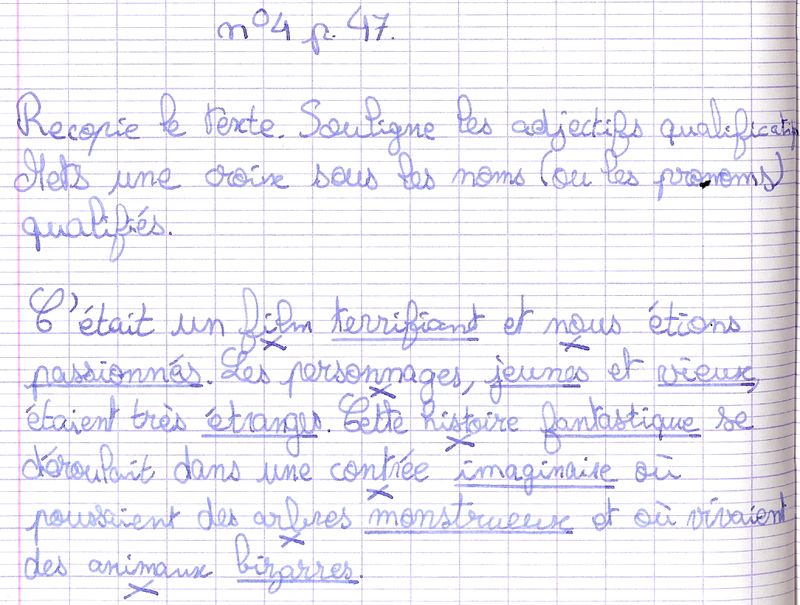 n°4 p. 47.
Recopie le texte. Souligne les adjectifs qualificatifs
Mets une croix sous les noms (ou les pronoms)
qualifiés.
C'était un film terrifiant et nous étions
passionnés. Les personnages, jeunes et vieux,
étaient très étranges. Cette histoire fantastique se
déroulait dans une contrée imaginaire où
poussaient des arbres monstrueux et où vivaient
des animaux bizarres.